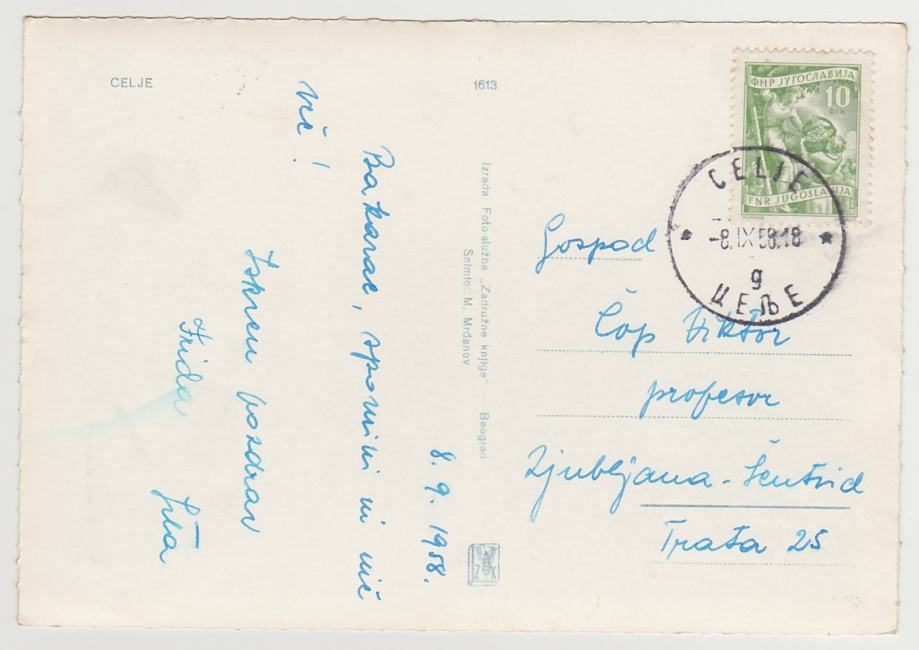 CELJE
1613
8. 9. 1958.
Bakarac, spomini in nič
več!
Iskren pozdrav
Frida
Izrada Foto-služba „Zadružne knjige" — Beograd
Snimio: M. Mrđanov
ZK
ФНР ЈУГОСЛАВИЈА
10
DIN
FNR JUGOSLAVIJA
CELJE
-8.IX 58.18
g
ЦЕЉЕ
Gospod
Čop Viktor
profesor
Ljubljana - Šentvid
Trata 25